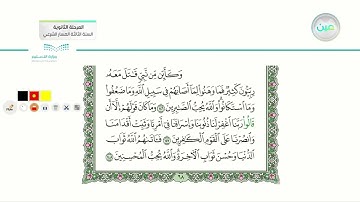 المرحلة الثانوية
السنة الثالثة المسار الشرعي
وزارة التعليم
عين
وَكَأَيِّن مِّن نَّبِيٍّ قَٰتَلَ مَعَهُۥ
رِبِّيُّونَ كَثِيرٌ فَمَا وَهَنُواْ لِمَآ أَصَابَهُمْ فِي سَبِيلِ ٱللَّهِ وَمَا ضَعُفُواْ
وَمَا ٱسْتَكَانُواْ وَٱللَّهُ يُحِبُّ ٱلصَّٰبِرِينَ ١٤٦ وَمَا كَانَ قَوْلَهُمْ إِلَّآ أَن
قَالُواْ رَبَّنَا ٱغْفِرْ لَنَا ذُنُوبَنَا وَإِسْرَافَنَا فِيٓ أَمْرِنَا وَثَبِّتْ أَقْدَامَنَا
وَٱنصُرْنَا عَلَى ٱلْقَوْمِ ٱلْكَٰفِرِينَ ١٤٧ فَـَٔاتَىٰهُمُ ٱللَّهُ ثَوَابَ
ٱلدُّنْيَا وَحُسْنَ ثَوَابِ ٱلْأٓخِرَةِ وَٱللَّهُ يُحِبُّ ٱلْمُحْسِنِينَ ١٤٨
٦٨